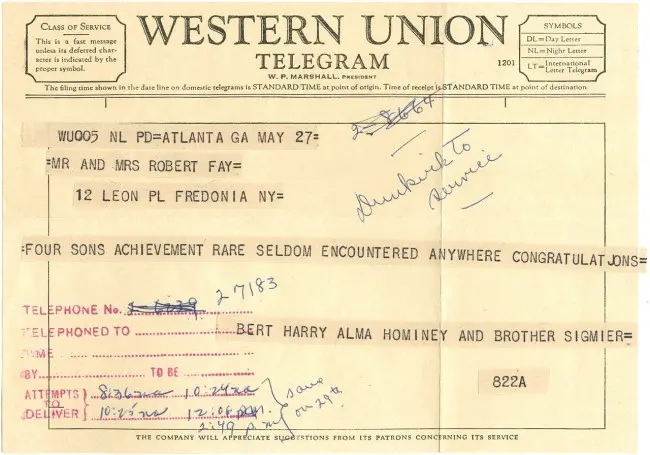 CLASS OF SERVICE
This is a fast message
unless its deferred char-
acter is indicated by the
proper symbol.
WESTERN UNION
TELEGRAM
W. P. MARSHALL, PRESIDENT
1201
SYMBOLS
DL=Day Letter
NL=Night Letter
LT=International Letter Telegram
The filing time shown in the date line on domestic telegrams is STANDARD TIME at point of origin. Time of receipt is STANDARD TIME at point of destination
2-8664
WU005 NL PD=ATLANTA GA MAY 27=
=MR AND MRS ROBERT FAY=
12 LEON PL FREDONIA NY=
Dunkirk to
service
=FOUR SONS ACHIEVEMENT RARE SELDOM ENCOUNTERED ANYWHERE CONGRATULATJONS=
27183
TELEPHONE No.
TELEPHONED TO
BERT HARRY ALMA HOMINEY AND BROTHER SIGMIER=
TIME
BY TO BE
822A
ATTEMPTS 8:36 na 10:24 na
TO
DELIVER 10:25 na 12:06 PM.
2:49 PM
same
on 29th
THE COMPANY WILL APPRECIATE SUGGESTIONS FROM ITS PATRONS CONCERNING ITS SERVICE